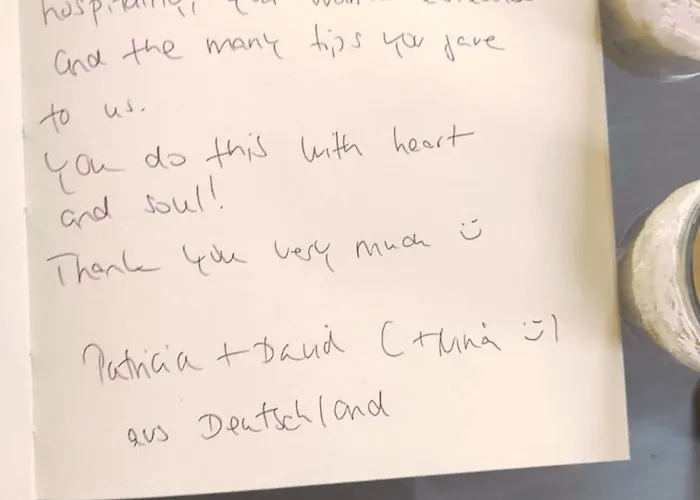 hospitality, you
and the many tips you gave
to us.
You do this with heart
and soul!
Thank you very much :)
Patricia + David (+ Nina :))
aus Deutschland